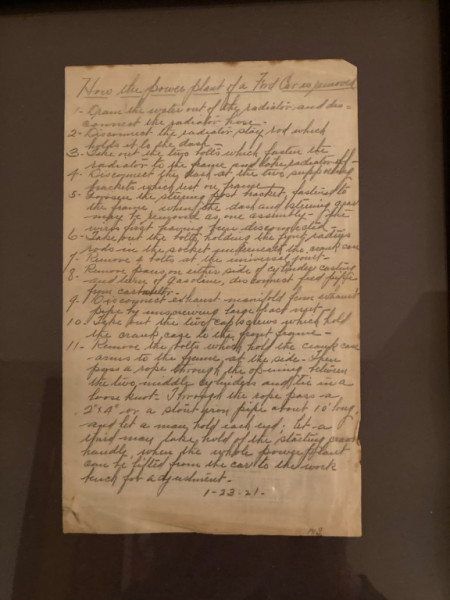 How the power plant of a Ford Car is removed
1- Drain the water out of the radiator and dis-
connect the radiator hose.-
2- Disconnect the radiator stay rod which
holds it to the dash-
3- Take out the two bolts which fasten the
radiator to the frame and take radiator off-
4- Disconnect the dash at the two supporting
brackets which rest on frame-
5- Loosen the steering post bracket, fastened to
the frame when the dash and steering gear
may be removed as one assembly- the
wires first having been disconnected-
6- Take out the bolts holding the front radius
rods in the socket underneath the crank case
7- Remove 4 bolts at the universal joint-
8- Remove pans on either side of cylinder casting
and turn off gasoline, disconnect feed pipe
from carburetor-
9- Disconnect exhaust manifold from exhaust
pipe by unscrewing large pact nut-
10- Take out the two cap screws which hold
the crank case to the front frame-
11- Remove the bolts which hold the crank case
arms to the frame at the side- then
pass a rope through the opening between
the two middle cylinders and tie in a
loose knot. Through the rope pass a
2"x4" or a stout iron pipe about 10' long
and let a man hold each end; let a
third man take hold of the starting crank
handle, when the whole power plant
can be lifted from the car to the work
bench for adjustment-
1-23-21-